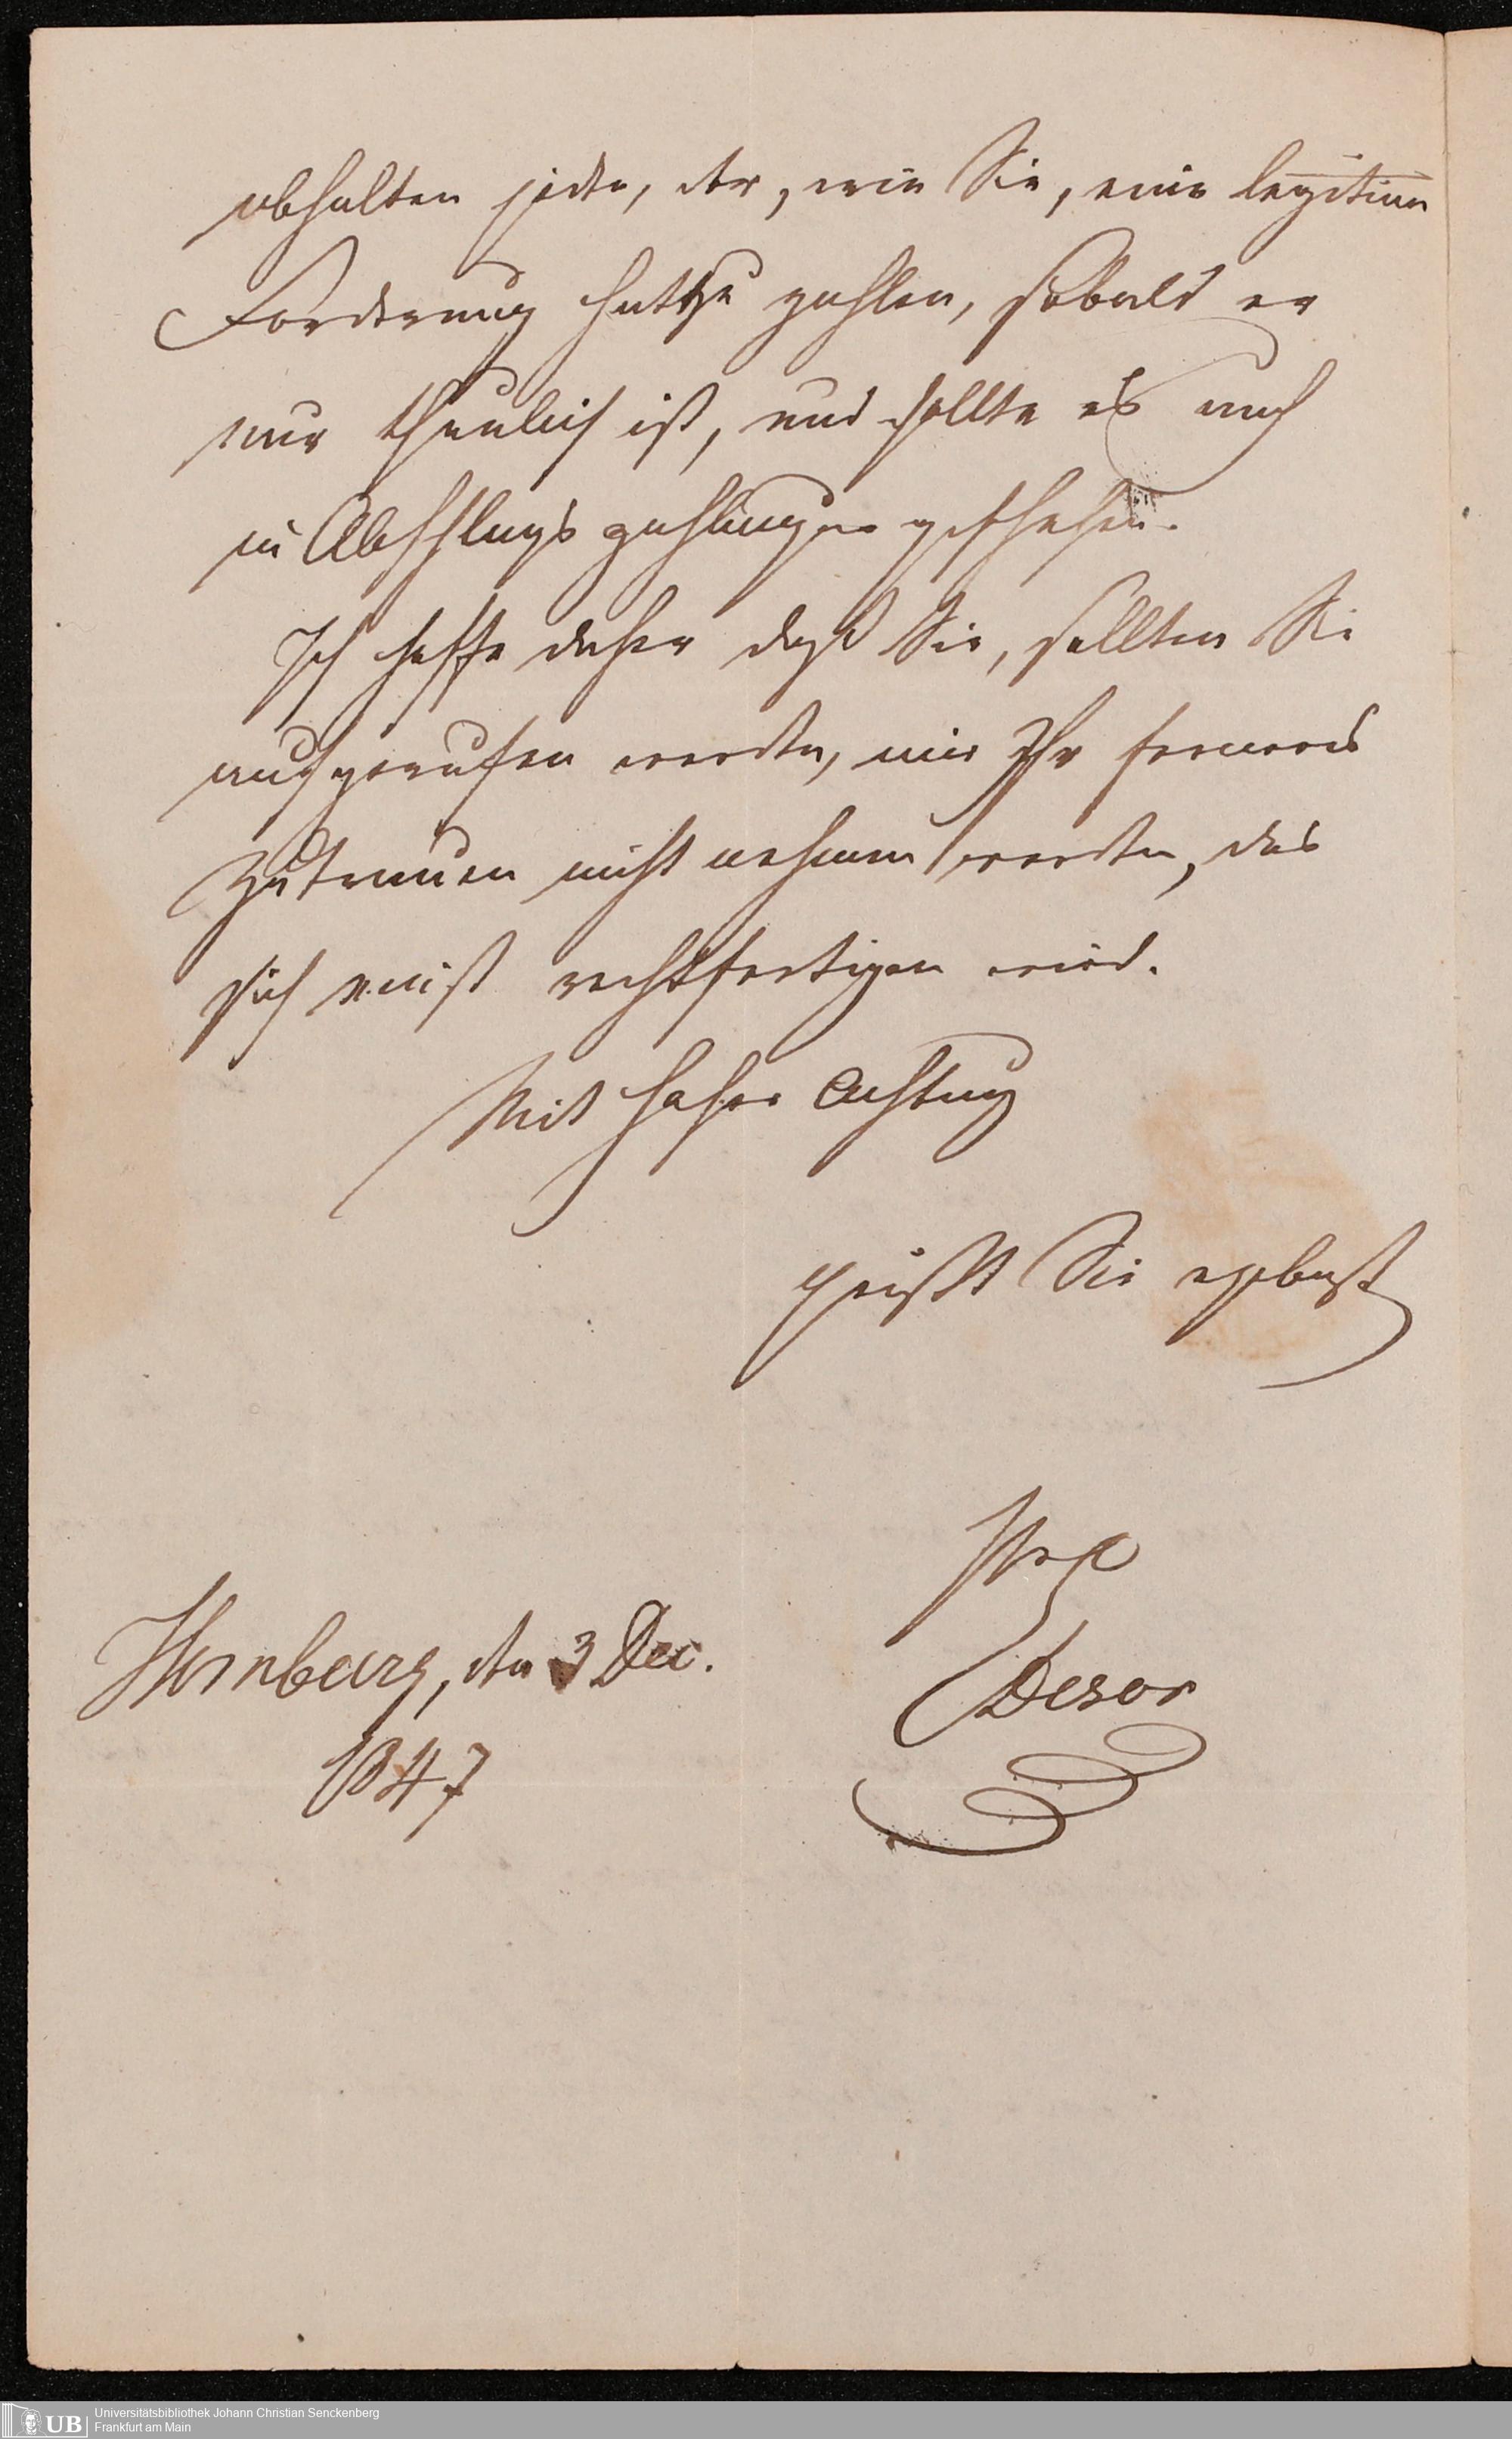 abhalten jeden, der, wie Sie, eine legitime
Forderung hat zu zahlen, sobald er
nur thunlich ist, und sollte es auch
in Abschlagszahlungen geschehen.
Ich hoffe daher daß Sie, sollten Sie
aufgerufen werden, mir Ihr ferneres
Zutrauen nicht nehmen werden, das
sich rechtfertigen wird.
Mit hoher Achtung
grüßt Sie ergebenst
Desor
Homburg, den 3 Dec.
1847
UB
Universitätsbibliothek Johann Christian Senckenberg
Frankfurt am Main